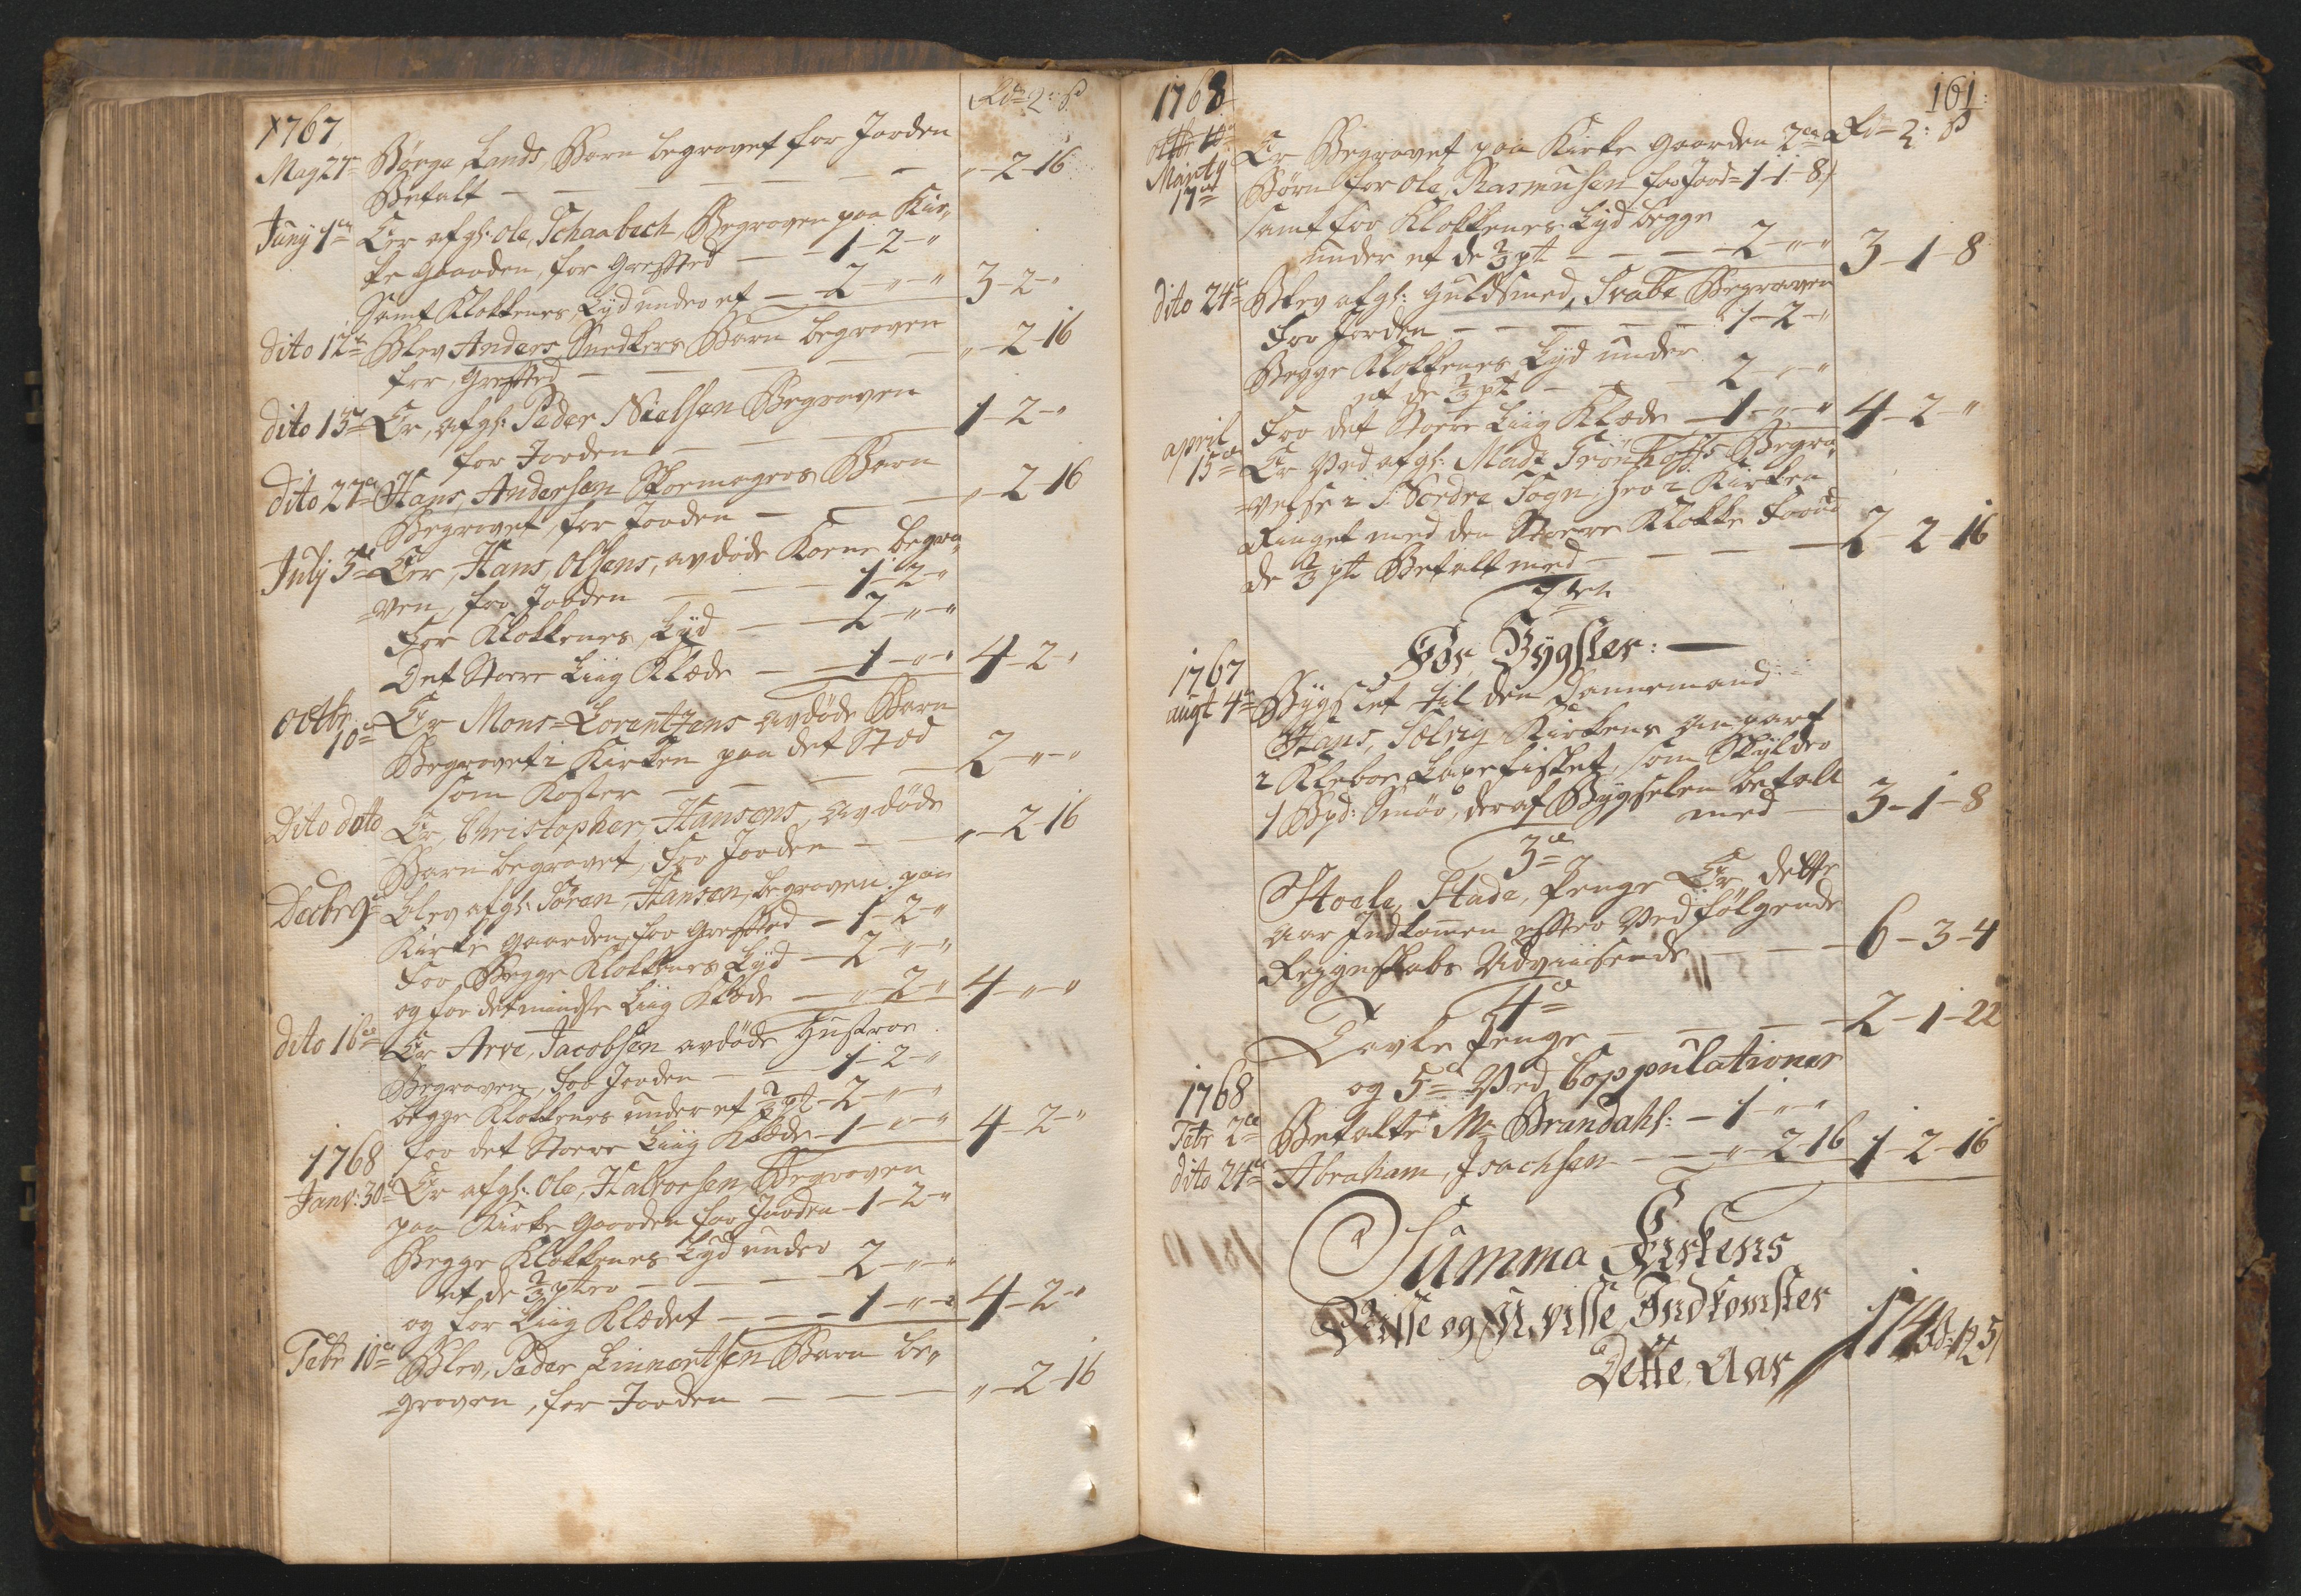 1767
Rdr 2: ß
May 27de Børge Lands, Barn begravet for Jorden
Betalt — — — — — — „-2-16
Juny 1te Er afg: Ole, Schaabech, Begraven paa Kir„
ke gaarden, for græfsted — 1-2-„
Samt Klokkenes, Lyd under et — 2-„-„ 3-2-„
dito 12te Blev Anders, Snedkers, Barn begraven
for, græfsted — — — „-2-16
dito 13de Er, afg: Peder Nielsen Begraven
for Jorden — — — 1-2-„
dito 27de Hans, Andersen Skomagers Barn
Begravet, for Jorden — — „-2-16
July 5te Er, Hans, Olsens, avdøde Kone begra„
=ven, for Jorden — — 1-2-„
For Klokkenes, Lyd — — 2-„-„
Det Større Liig Klæde — — 1-„-„ 4-2-„
Octbr 10de Er Mons=Lorentzens avdøde Barn
Begravet i Kirken paa det Stæd
som Koster — — — — 2-„-„
Dito dito Er, Christopher, Hansens, avdøde
Barn begravet, for Jorden — — „-2-16
Decbr 9de Blev afg: Søren, Hansen, begraven paa
Kirke gaarden for græfsted — 1-2-„
for Begge Klokkenes Lyd — 2-„-„
og for det mindste Liig Klæde — „-2-„ 4-„-„
dito 16de Er Arve, Jacobsen avdøde Hustroe
Begraven, for Jorden — — 1-2-„
begge Klokkenes under et 2/3 pt 2-„-„
for det Større Liig Klæde — 1-„-„ 4-2-„
1768
Janv: 30te Er afg: Ole, Halvorsen, Begraven
paa Kirke gaarden for Jorden — 1-2-„
Begge Klokkenes Lyd under
et de 2/3 pter — — — 2-„-„
og for Liig Klædet — — — 1-„-„ 4-2-„
Febr 10de Blev, Peder Linnertsen Barn be„
=graven, for Jorden — — — „-2-16
1768
161:
Marty 17de Er Begravet paa Kirke gaarden 2de Rdr 2: ß
Børn for Ole, Rasmusen for Jord= 1-1-8/
samt for Klokkenes Lyd begge
under et de 2/3 pt — — — 2-„-„ 3-1-8
dito 24de Blev afg: guldsmed, Svabe Begraven
For Jorden — — — — 1-2-„
Begge Klokkenes Lyd under
et de 2/3 pt — — — 2-„-„
For det Større Liig Klæde — 1-„-„ 4-2-„
april 15de Er Ved afg: Mad: Grönhoffs Begra„
=velse i Søndre Sogn, her i Kirken
Ringet med den Større Klokke
de 2/3 pt Betalt med — — — 2-2-16
2det
For Bygsler: —
1767
augt 4de Bygslet til den Dannemand
Hans, Solvig Kirkens anpart
i Kleboe Laxefisket, som Skylder
1 Bpd: Smør, deraf Bygselen betalt
med — 3-1-8
3de
Stoele, Stade, Penge Er dette
Aar Indkomen efter Ved følgende
Regnskabs Udviisende — — — 6-3-4
4de
Tavle Penge — — — — 2-1-22
og 5te Ved Coppulationer
1768
Febr 2de Betalte Mr Brandahl: — 1-„-„
dito 24de Abraham, Joachsen — — „-2-16 1-2-16
Summa Kirkens
Visse og Uvisse Indkomster
Dette Aar